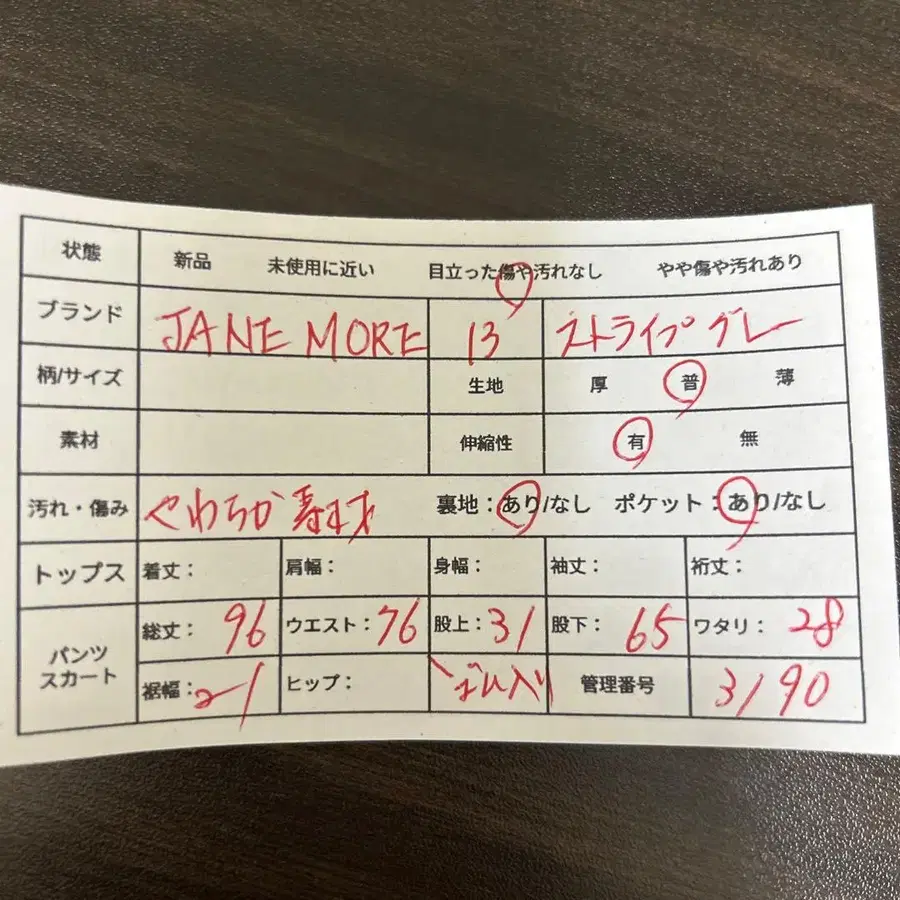 状態 新品 未使用に近い 目立った傷や汚れなし やや傷や汚れあり
ブランド JANE MORE 13 ストライプグレー
柄/サイズ 生地 厚 普 薄
素材 伸縮性 有 無
汚れ・傷み やわらか素材 裏地:あり/なし ポケット:あり/なし
トップス 着丈: 肩幅: 身幅: 袖丈: 裄丈:
パンツ スカート 総丈: 96 ウエスト: 76 股上: 31 股下: 65 ワタリ: 28
裾幅: 21 ヒップ: 管理番号 3190